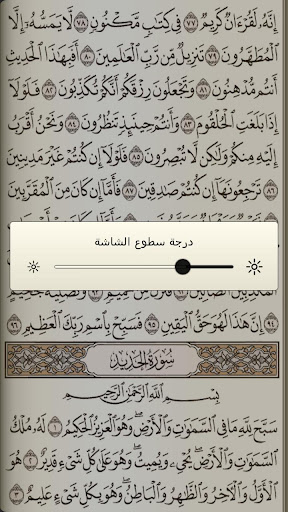 إِنَّهُۥ لَقُرْءَانٌ كَرِيمٌ ٧٧ فِى كِتَٰبٍ مَّكْنُونٍ ٧٨ لَّا يَمَسُّهُۥٓ إِلَّا
ٱلْمُطَهَّرُونَ ٧٩ تَنزِيلٌ مِّن رَّبِّ ٱلْعَٰلَمِينَ ٨٠ أَفَبِهَٰذَا ٱلْحَدِيثِ
أَنتُم مُّدْهِنُونَ ٨١ وَتَجْعَلُونَ رِزْقَكُمْ أَنَّكُمْ تُكَذِّبُونَ ٨٢ فَلَوْلَآ
إِذَا بَلَغَتِ ٱلْحُلْقُومَ ٨٣ وَأَنتُمْ حِينَئِذٍ تَنظُرُونَ ٨٤ وَنَحْنُ أَقْرَبُ
إِلَيْهِ مِنكُمْ وَلَٰكِن لَّا تُبْصِرُونَ ٨٥ فَلَوْلَآ إِن كُنتُمْ غَيْرَ مَدِينِينَ
٨٦ تَرْجِعُونَهَآ إِن كُنتُمْ صَٰدِقِينَ ٨٧ فَأَمَّآ إِن كَانَ مِنَ ٱلْمُقَرَّبِينَ
درجة سطوع الشاشة
٩٤ إِنَّ هَٰذَا لَهُوَ حَقُّ ٱلْيَقِينِ ٩٥ فَسَبِّحْ بِٱسْمِ رَبِّكَ ٱلْعَظِيمِ ٩٦
سُورَةُ الحَدِيدِ
بِسْمِ ٱللَّهِ ٱلرَّحْمَٰنِ ٱلرَّحِيمِ
سَبَّحَ لِلَّهِ مَا فِى ٱلسَّمَٰوَٰتِ وَٱلْأَرْضِ وَهُوَ ٱلْعَزِيزُ ٱلْحَكِيمُ ١ لَهُۥ مُلْكُ
ٱلسَّمَٰوَٰتِ وَٱلْأَرْضِ يُحْىِۦ وَيُمِيتُ وَهُوَ عَلَىٰ كُلِّ شَىْءٍ قَدِيرٌ ٢ هُوَ
ٱلْأَوَّلُ وَٱلْءَاخِرُ وَٱلظَّٰهِرُ وَٱلْبَاطِنُ وَهُوَ بِكُلِّ شَىْءٍ عَلِيمٌ ٣